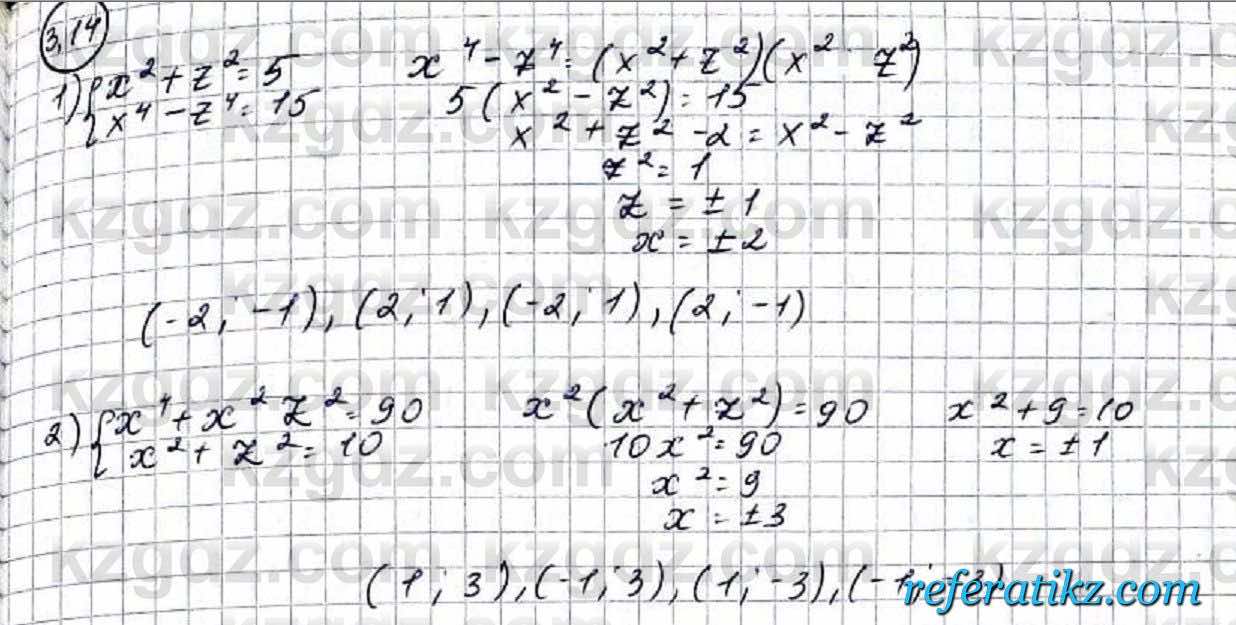 3.14
1) { x² + z² = 5
x⁴ - z⁴ = 15
x⁴ - z⁴ = (x² + z²)(x² z²)
5(x² - z²) = 15
x² + z² - 2 = x² - z²
z² = 1
z = ±1
x = ±2
(-2; -1), (2; 1), (-2; 1), (2; -1)
2) { x⁴ + x² z² = 90
x² + z² = 10
x²(x² + z²) = 90
10x² = 90
x² = 9
x = ±3
x² + 9 = 10
x = ±1
(1; 3), (-1; 3), (1; -3), (-1; -3)
referatikz.com
kzgdz.com